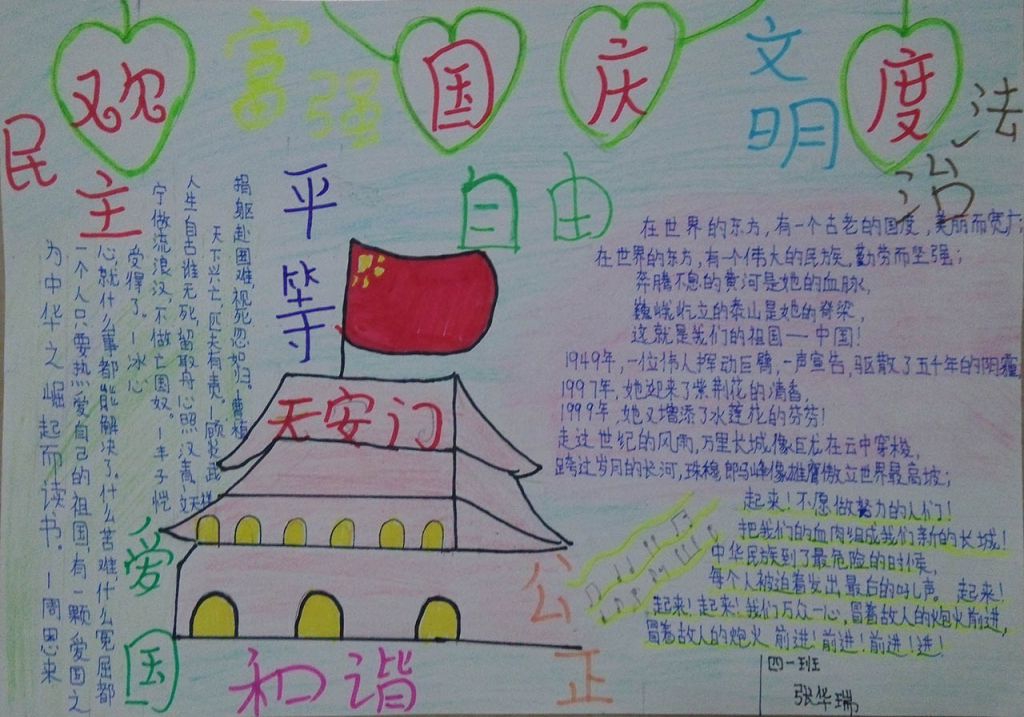 欢国庆度
富强
文明
民主
法治
平等
自由
爱国
公正
和谐
天安门
捐躯赴国难,视死忽如归。曹植
天下兴亡,匹夫有责。—顾炎武
人生自古谁无死,留取丹心照汉青。
宁做流浪汉,不做亡国奴。—丰子恺
一个人只要热爱自己的祖国,有一颗爱国之
心,就什么事都能解决了。什么苦难,什么冤屈都
受得了。—冰心
为中华之崛起而读书。—周恩来
在世界的东方,有一个古老的国度,美丽而宽广;
在世界的东方,有一个伟大的民族,勤劳而坚强;
奔腾不息的黄河是她的血脉,
巍峨屹立的泰山是她的脊梁,
这就是我们的祖国—中国!
1949年,一位伟人挥动巨臂,一声宣告,驱散了五千年的阴霾
1997年,她迎来了紫荆花的清香,
1999年,她又增添了水莲花的芬芳!
走过世纪的风雨,万里长城像巨龙在云中穿梭,
跨过岁月的长河,珠穆郎玛峰像雄鹰傲立世界最高坡;
起来!不愿做努力的人们!
把我们的血肉组成我们新的长城!
中华民族到了最危险的时候,
每个人被迫着发出最后的叫声。起来!
起来!起来!我们万众一心,冒着敌人的炮火前进,
冒着敌人的炮火 前进!前进!前进!进!
四一班
张华瑞